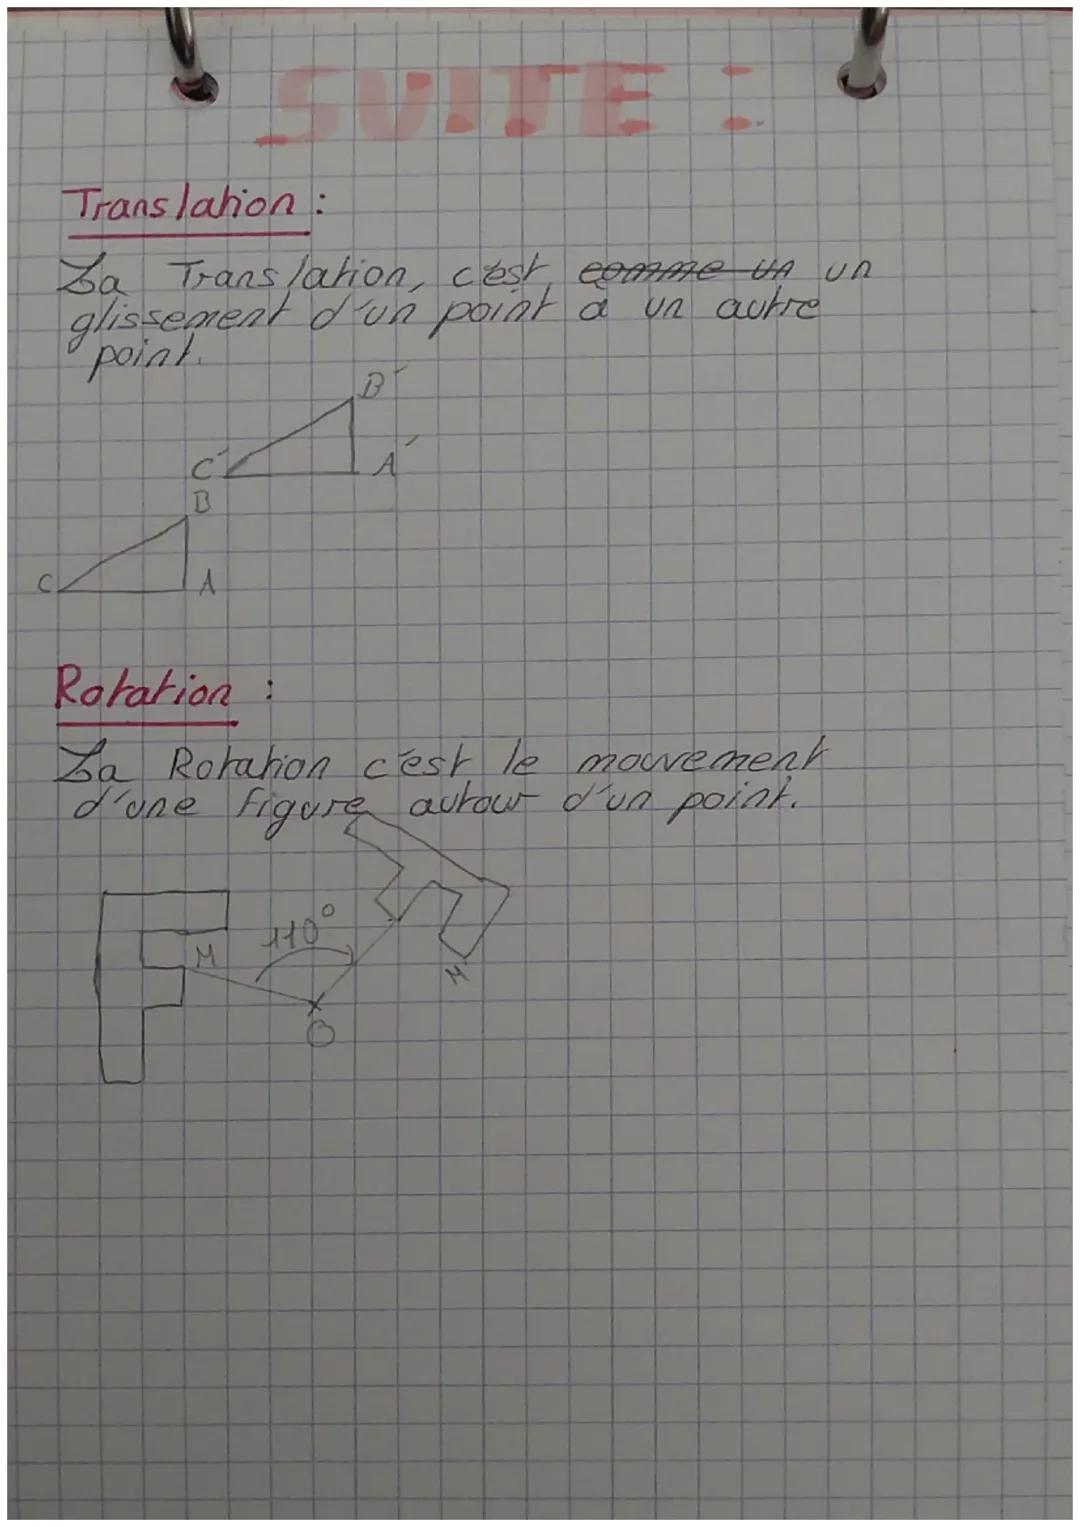 SUITE :
Translation :
La Translation, c'est comme un un
glissement d'un point à un autre
point.
B'
C'
A'
B
C
A
Rotation :
La Rotation c'est le mouvement
d'une figure autour d'un point.
110°
M
M
O